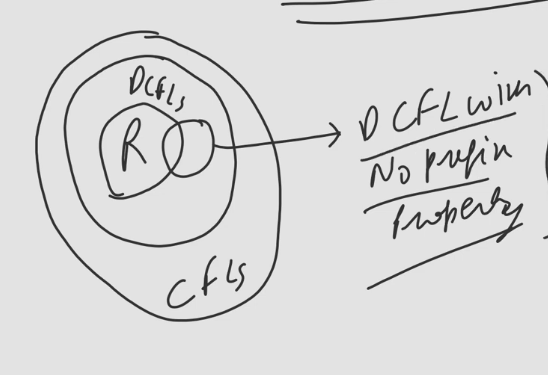 DCFLs
R
CFLs
DCFL with
No prefix
Property